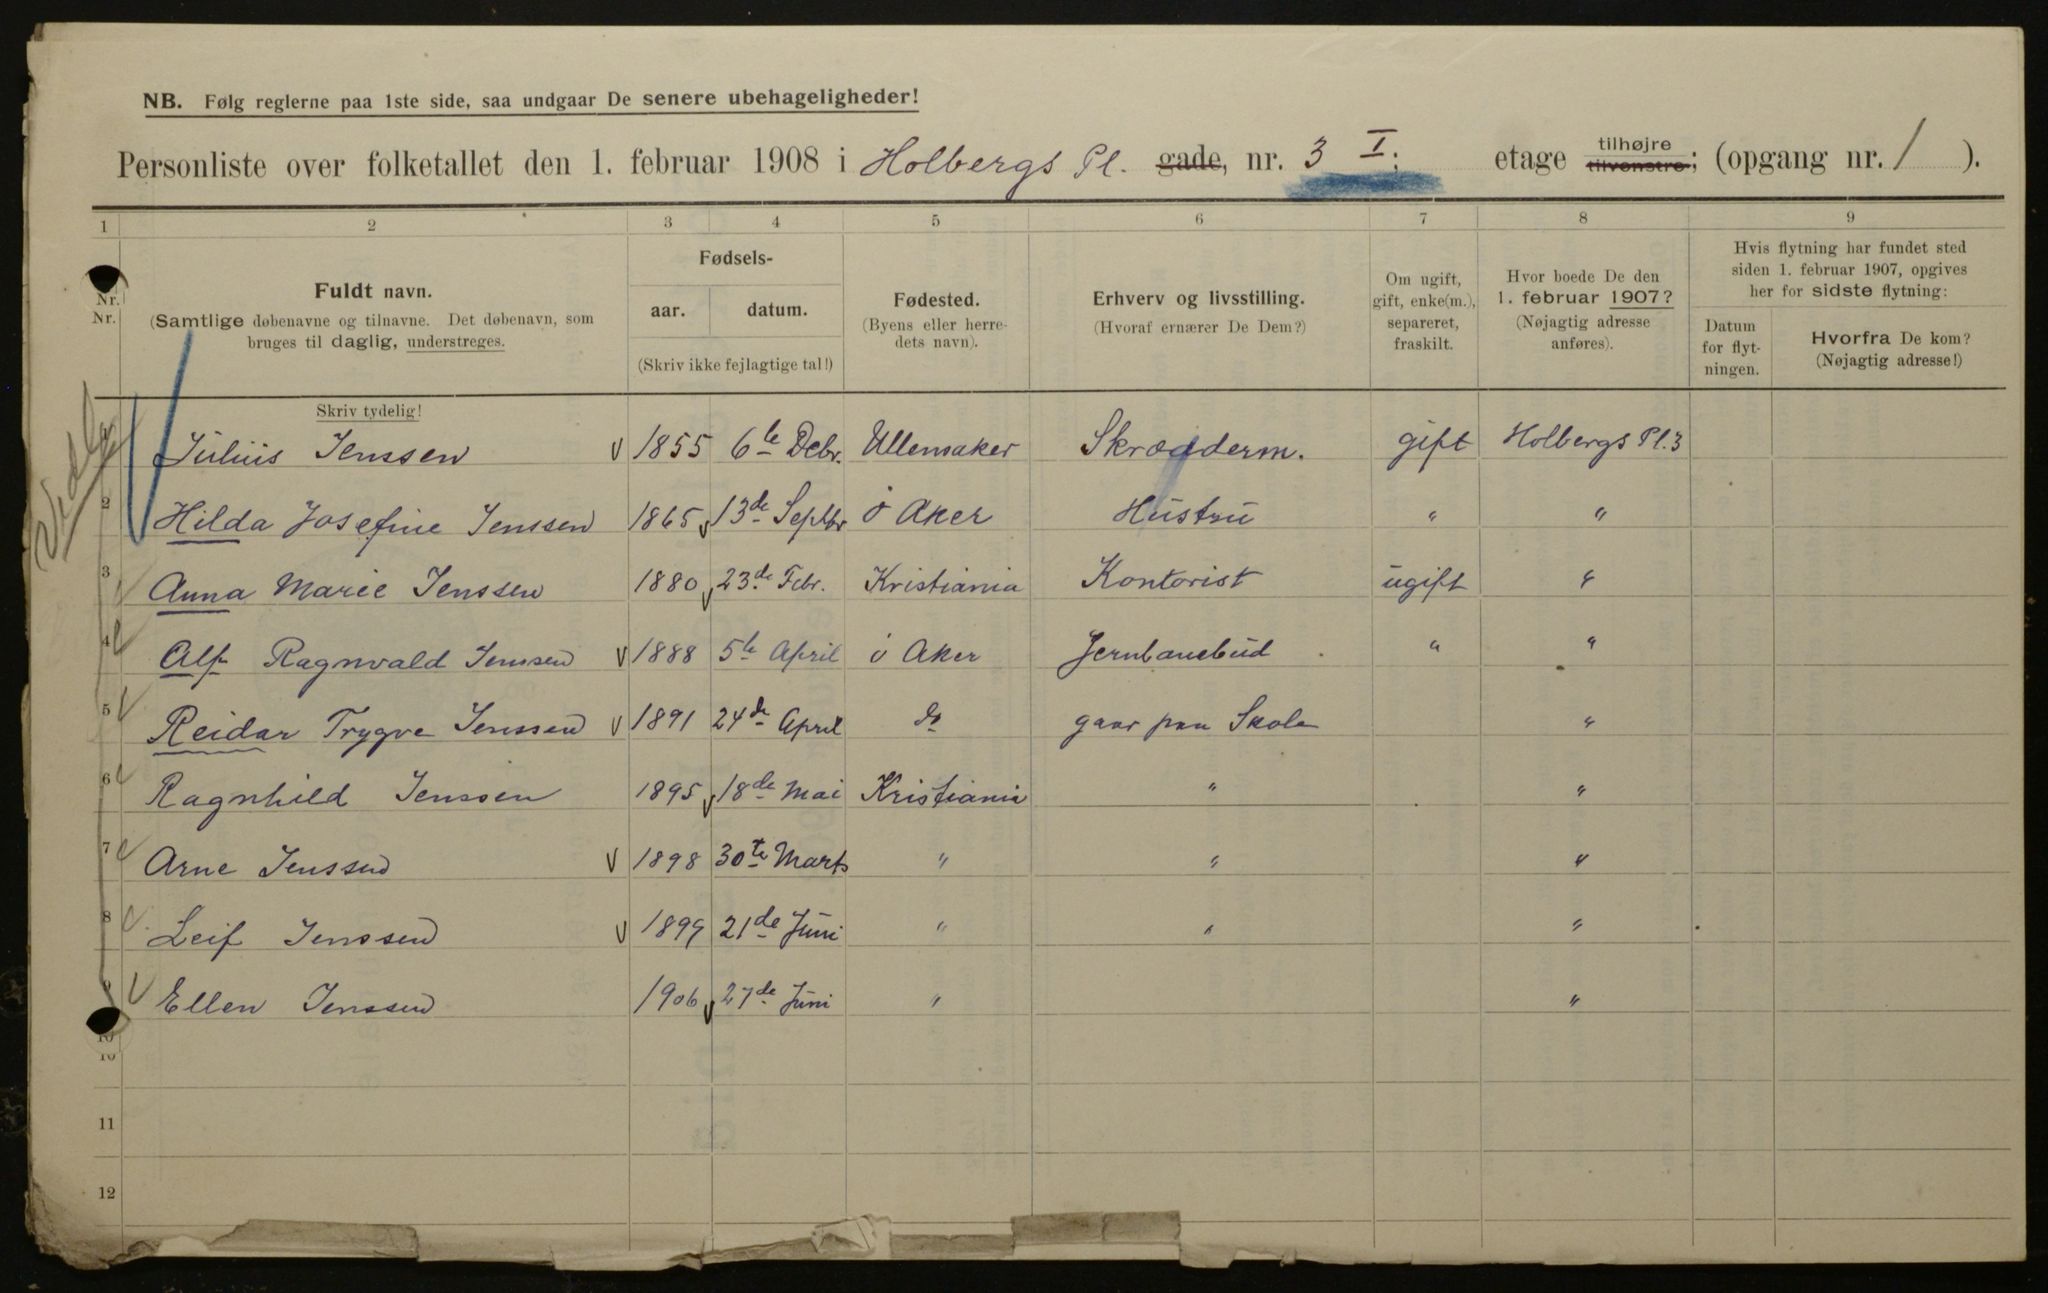 NB. Følg reglerne paa 1ste side, saa undgaar De senere ubehageligheder!
Personliste over folketallet den 1. februar 1908 i Holbergs Pl. gade, nr. 3 I; etage tilhøjre tilvenstre; (opgang nr. 1 ).
1 2 3 4 5 6 7 8 9
Nr. Nr.
Fuldt navn.
(Samtlige døbenavne og tilnavne. Det døbenavn, som
bruges til daglig, understreges.
Fødsels-
aar. datum.
(Skriv ikke fejlagtige tal!)
Fødested.
(Byens eller herre-
dets navn).
Erhverv og livsstilling.
(Hvoraf ernærer De Dem?)
Om ugift,
gift, enke(m.),
separeret,
fraskilt.
Hvor boede De den
1. februar 1907?
(Nøjagtig adresse
anføres).
Hvis flytning har fundet sted
siden 1. februar 1907, opgives
her for sidste flytning:
Datum
for flyt-
ningen.
Hvorfra De kom?
(Nøjagtig adresse!)
Skriv tydelig!
Julius Jenssen 1855 6te Debr. Ullensaker Skræderm. gift Holbergs Pl. 3
2 Hilda Josefine Jenssen 1865 13de Septbr Ø Aker Hustru " "
3 Anna Marie Jenssen 1880 23de Febr. Kristiania Kontorist ugift "
4 Alf Ragnvald Jenssen 1888 5te April Ø Aker Jernbanebud " "
5 Reidar Trygve Jenssen 1891 24de April do gaar paa Skole "
6 Ragnhild Jenssen 1895 18de Mai Kristiania " "
7 Arne Jenssen 1898 30te Marts " " "
8 Leif Jenssen 1899 21de Juni " " "
9 Ellen Jenssen 1906 27de Juni " "
10
10
11
12